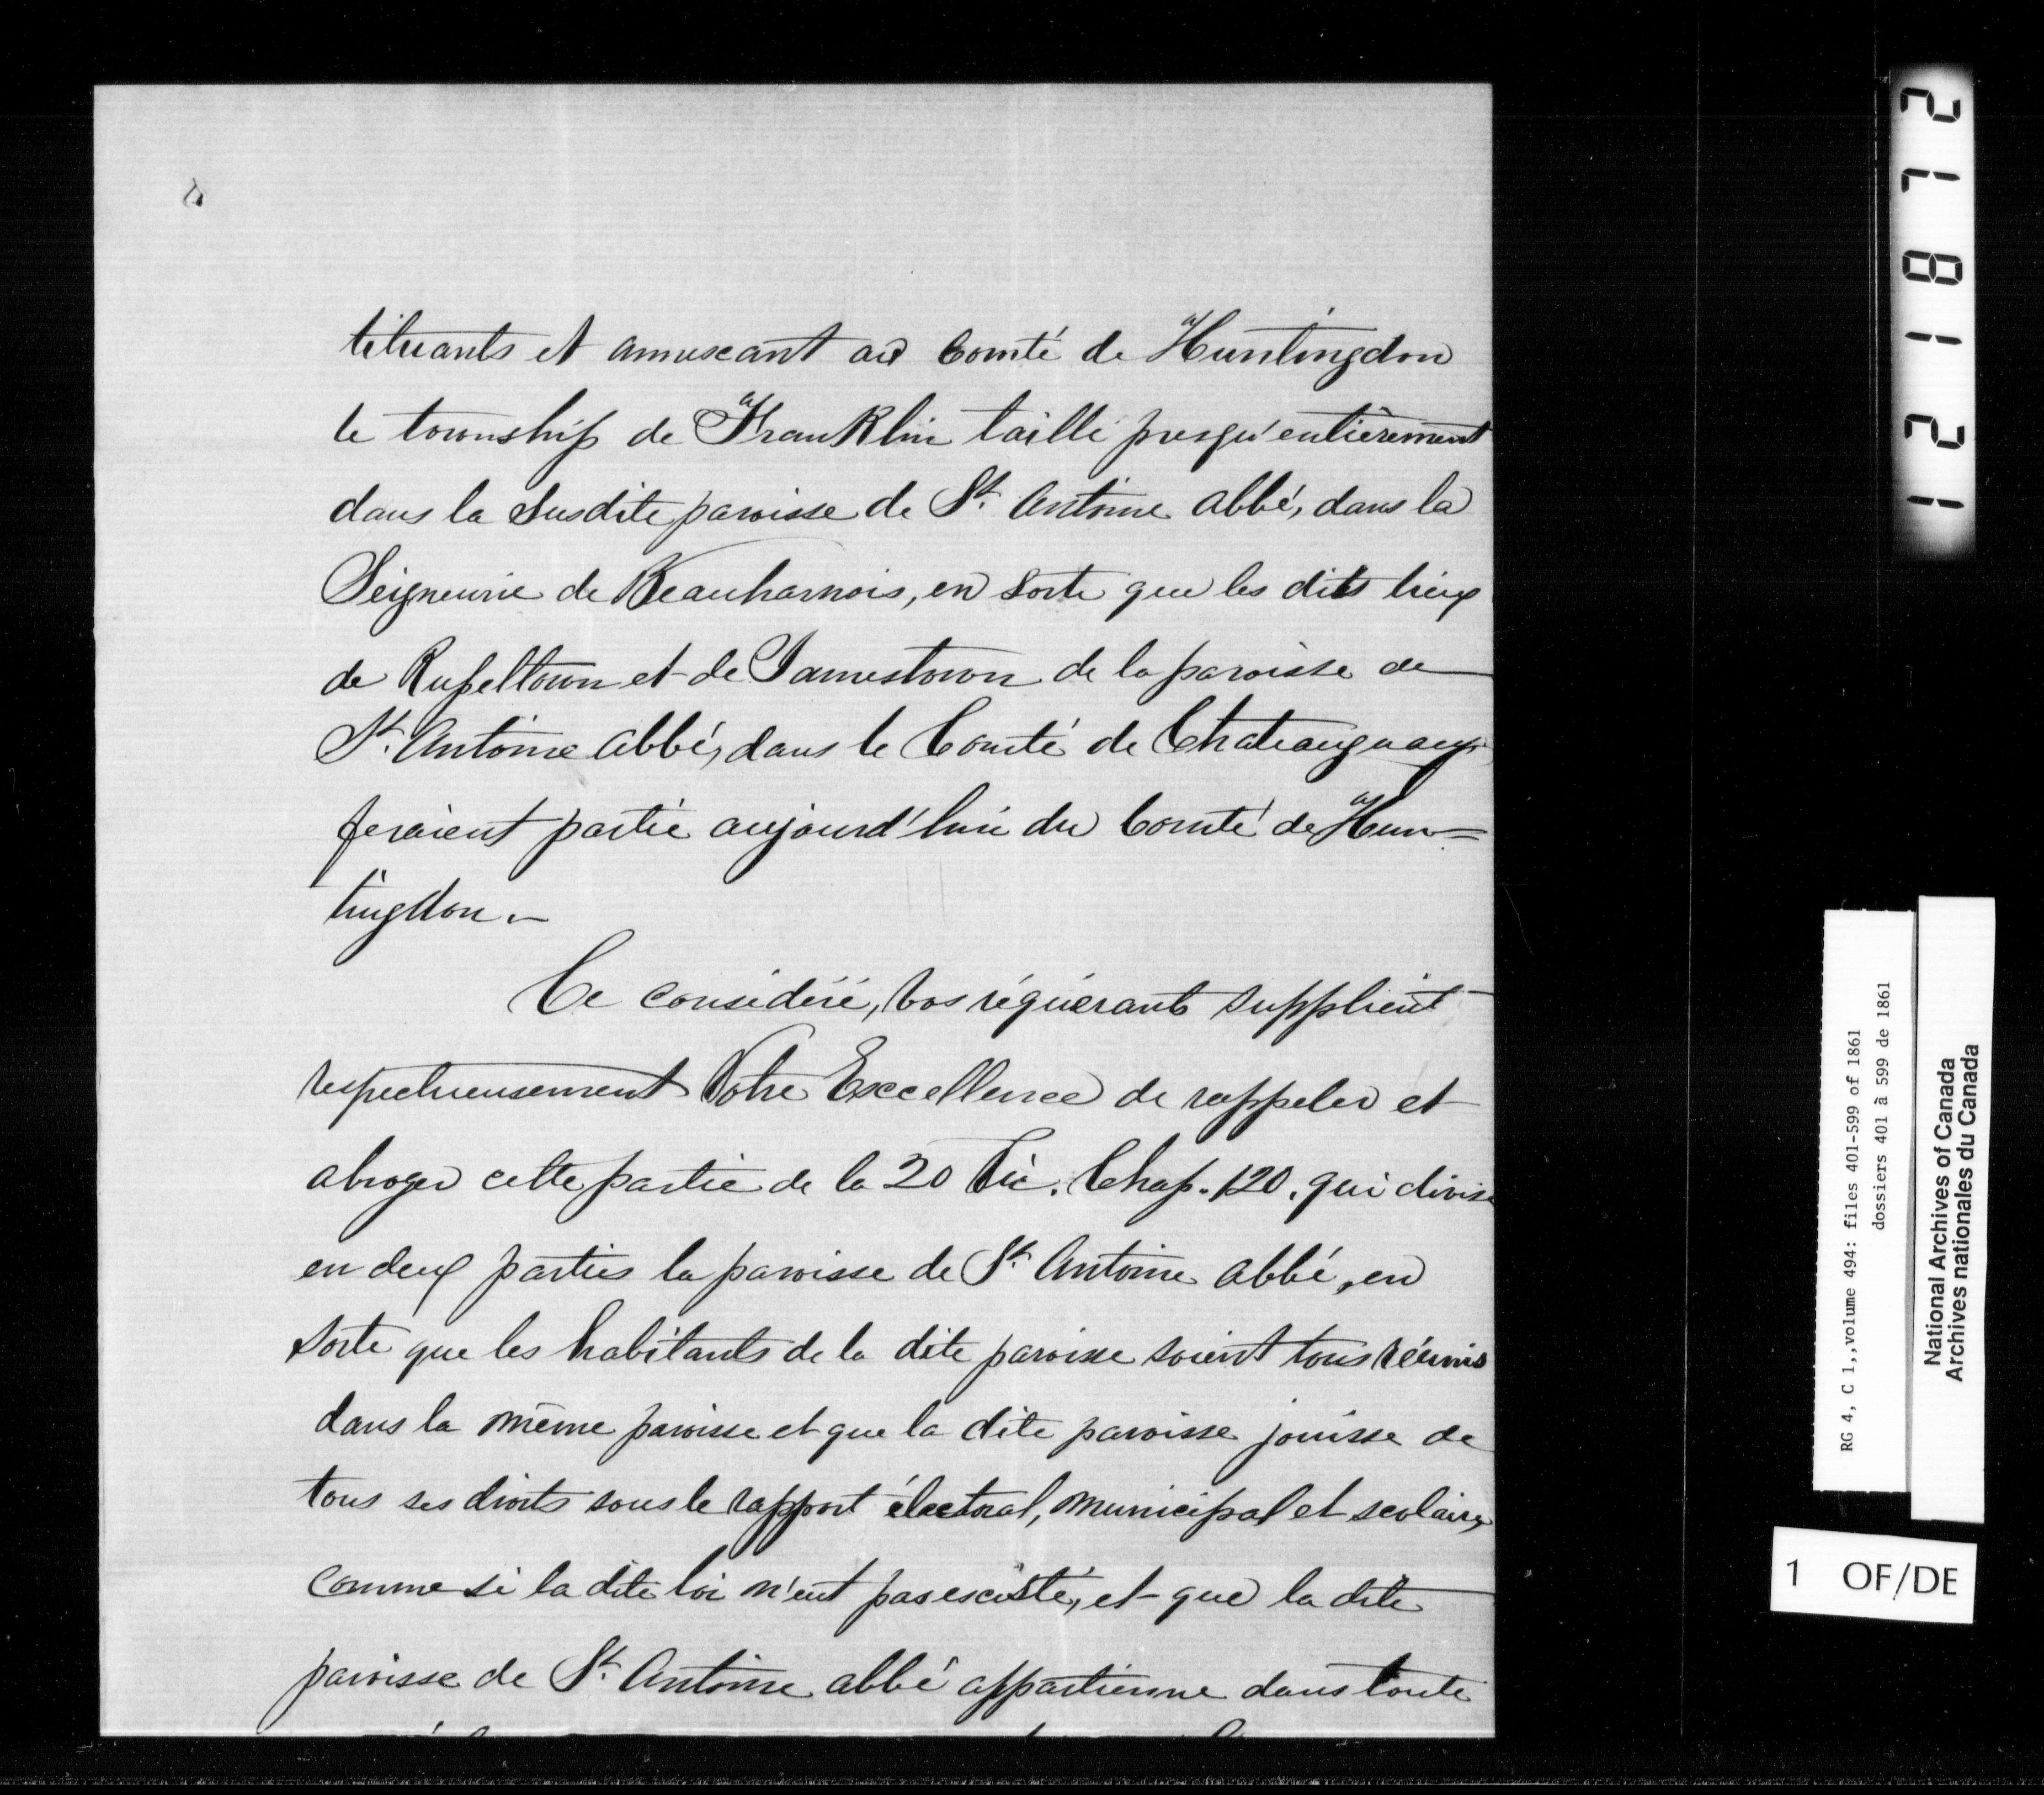 tituants et annexant au Comté de Huntingdon
le township de Franklin taillé presqu'entièrement
dans la susdite paroisse de St. Antoine abbé, dans la
Seigneurie de Beauharnois, en sorte que les dits lieux
de Russeltown et de Jamestown de la paroisse de
St. Antoine abbé, dans le Comté de Chateauguay
feraient partie aujourd'hui du Comté de Hun=
tingdon.–
Ce considéré, vos réquérants supplient
respectueusement Votre Excellence de rappeler et
abroger cette partie de la 20 Vic. Chap. 120. qui divise
en deux parties la paroisse de St. Antoine abbé, en
sorte que les habitants de la dite paroisse soient tous réunis
dans la même paroisse et que la dite paroisse jouisse de
tous ses droits sous le rapport électoral, municipal et scolaire,
comme si la dite loi n'eut pas existé, et que la dite
paroisse de St. Antoine abbé appartienne dans toute
121812
RG 4, C 1,,volume 494: files 401-599 of 1861
dossiers 401 à 599 de 1861
National Archives of Canada
Archives nationales du Canada
1 OF/DE